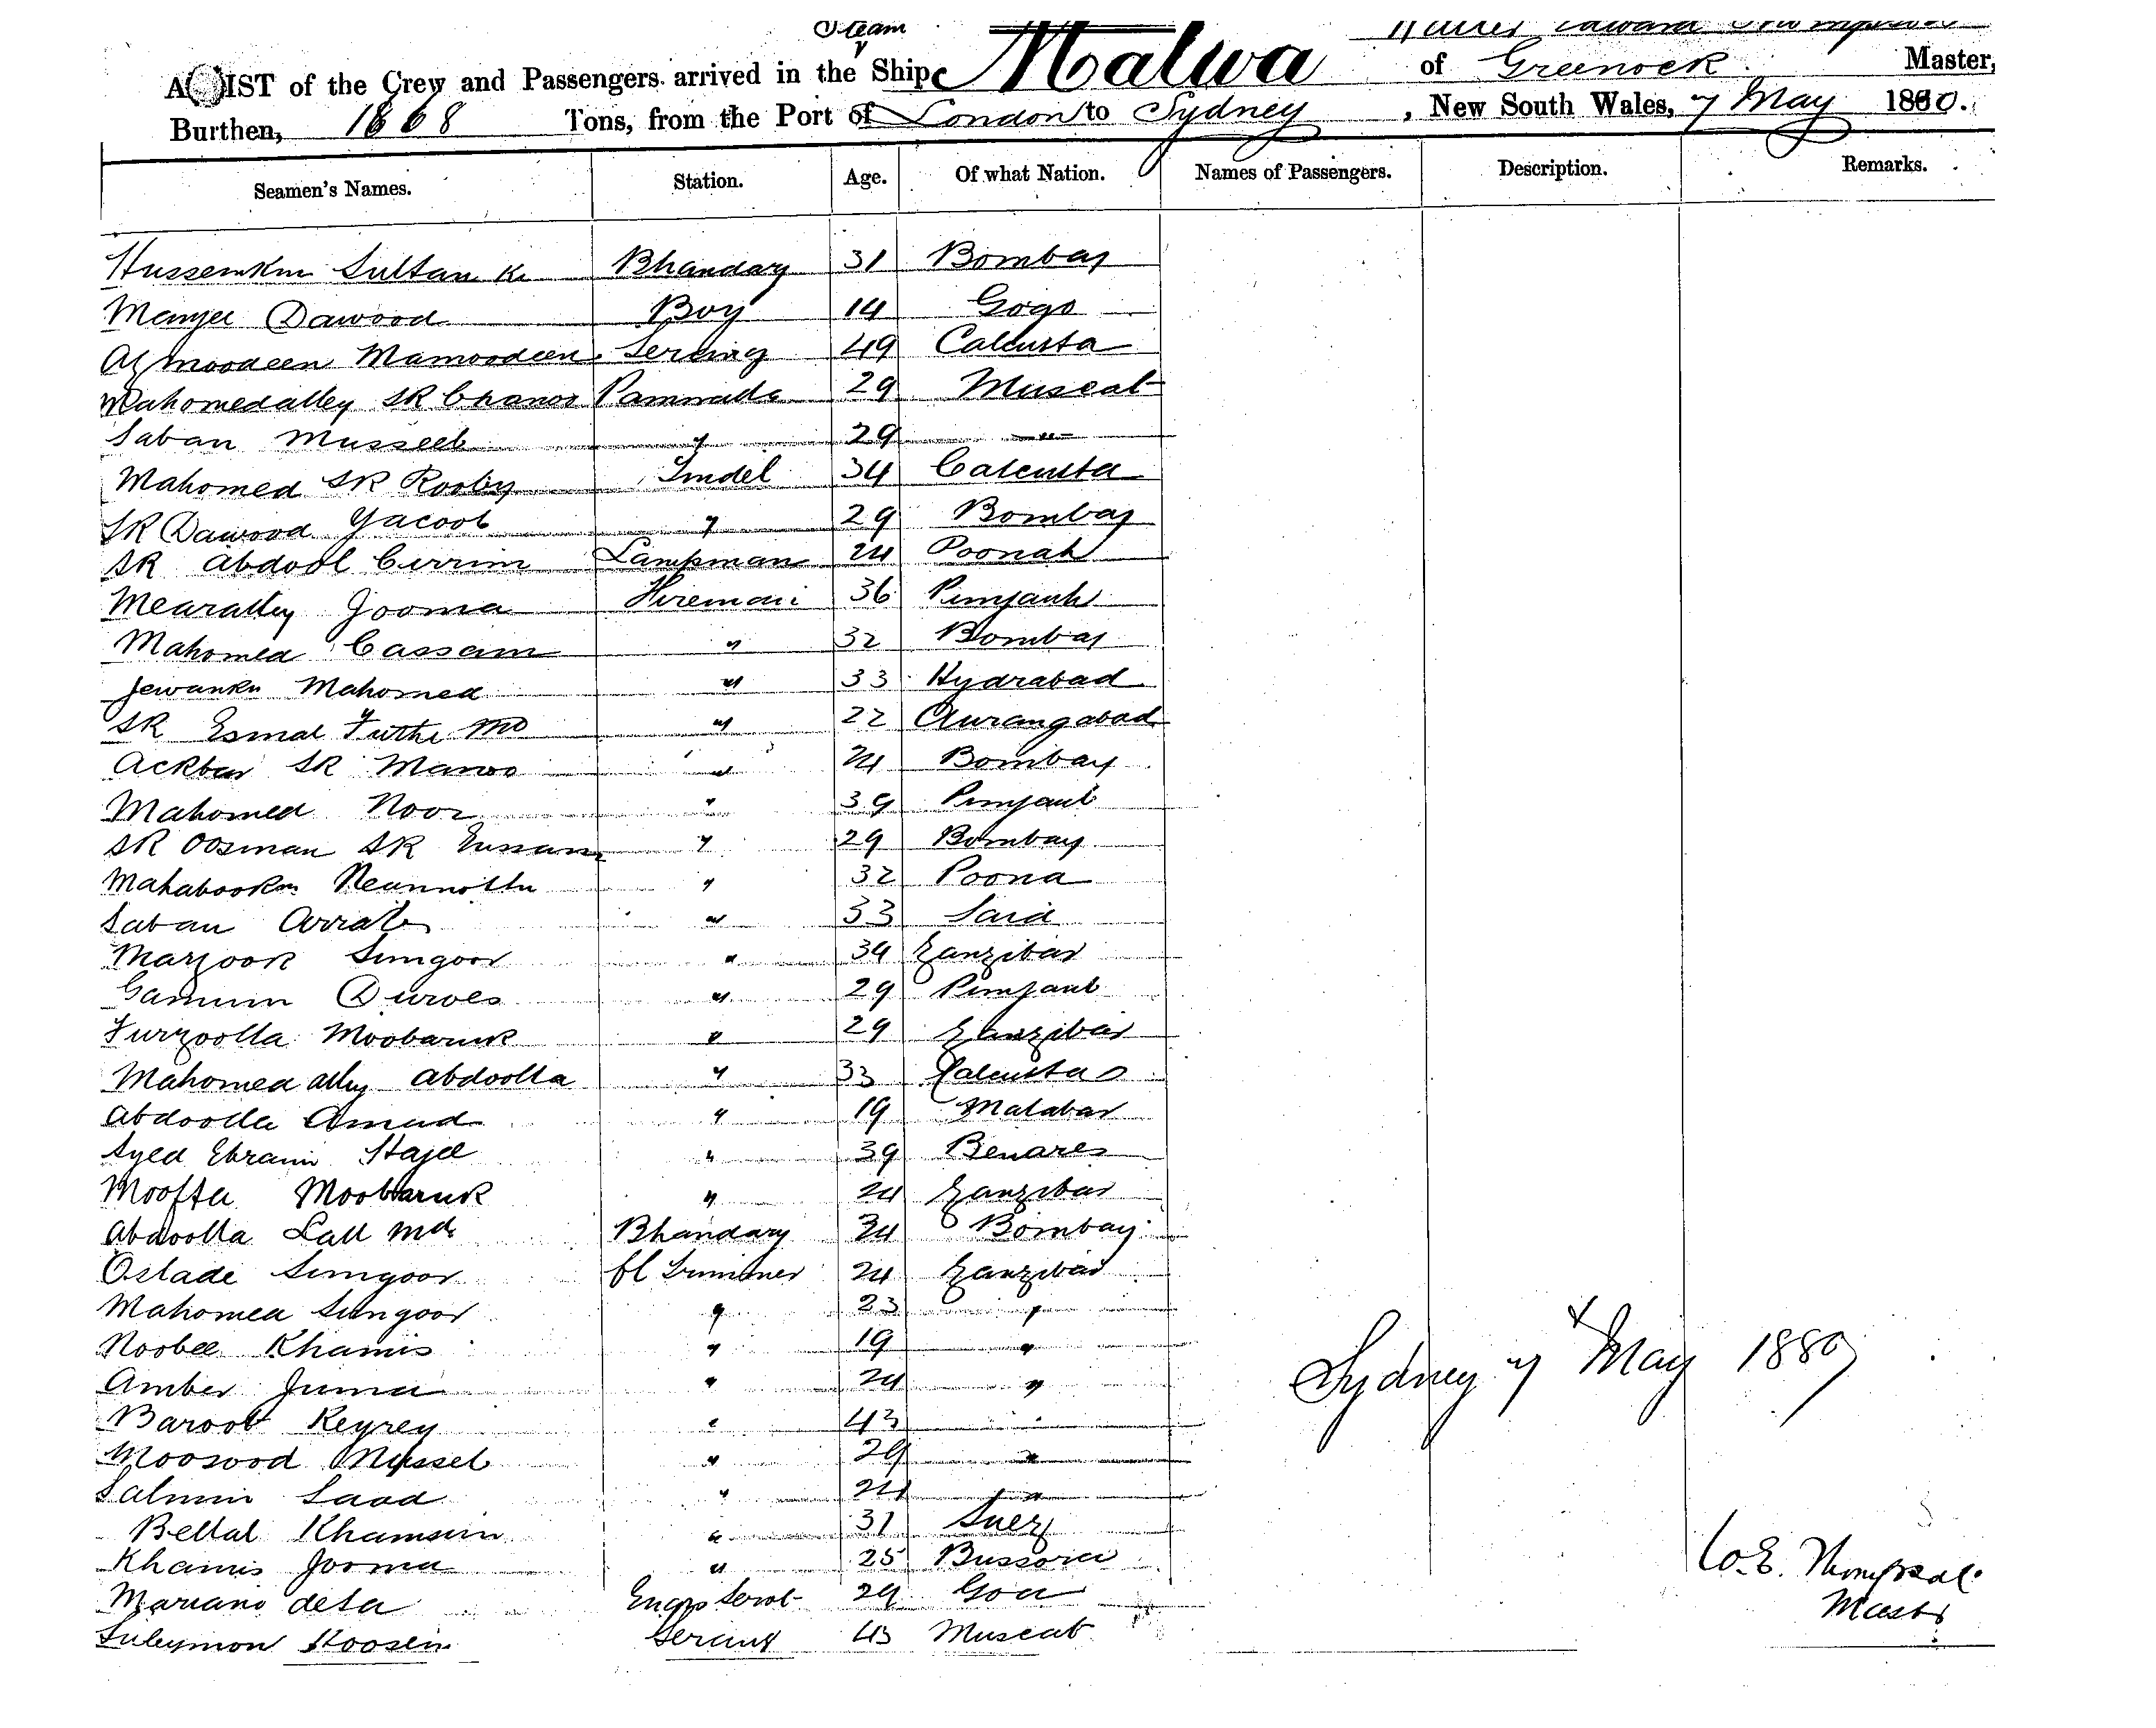 Steam
A LIST of the Crew and Passengers arrived in the Ship Malwa of Greenock Master,
Burthen, 1668 Tons, from the Port of London to Sydney, New South Wales, 7 May 1880.
Seamen's Names. Station. Age. Of what Nation. Names of Passengers. Description. Remarks.
Sultan Bhandary 31 Bombay
Dawood Boy 14 Gogo
Mamoodeen Serang 49 Calcutta
Mahomedalley SK 29 Muscat
Saban Musseeb " 29 "
Mahomed SK Tindel 34 Calcutta
SK Dawood Yacoob " 29 Bombay
SK Abdool Currim Lampman 24 Poonah
Mearalley Jooma Fireman 36 Punjaub
Mahomed Cassam " 32 Bombay
Jewankn Mahomed " 33 Hydrabad
SK Esmal Futhe Md " 22 Aurangabad
Ackbar SK " 24 Bombay
Mahomed Noor " 39 Punjaub
SK Oosman SK " 29 Bombay
" 32 Poona
Saban " 33 Said
Marzook Sungoor " 39 Zanzibar
" 29 Punjaub
Furzoolla Moobaruk " 29 Zanzibar
Mahomed alley Abdoolla " 33 Calcutta
Abdoolla Amud " 19 Malabar
Syed Ebraim Hajee " 39 Benares
Moofta Moobaruk " 24 Zanzibar
Abdoolla Lall Md Bhandary 34 Bombay
Sungoor Cl Trimmer 24 Zanzibar
Mahomed Sungoor " 23 "
Noobee Khamis " 19 "
Amber Juma " 24 "
Baroot Keyrey " 43 "
Moosood Mussel " 29 "
Salmin Saad " 24 "
Bellal Khamsin " 31 Suez
Khamis Jooma " 25 Bussora
Mariano desa Engrs Servt 29 Goa
Suleymon Hoosen Serang 43 Muscat
Sydney 7 May 1880
W. E. Thompson
Master